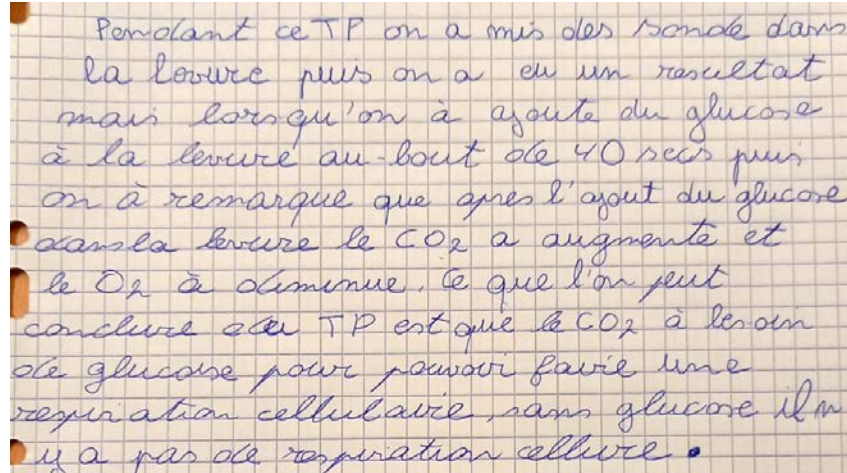 Pendant ce TP on a mis des sonde dans
la levure puis on a eu un resultat
mais lorsqu'on à ajoute du glucose
à la levure au-bout de 40 secs puis
on à remarque que apres l'ajout du glucose
dans la levure le CO2 a augmenté et
le O2 à diminue. Ce que l'on peut
conclure du TP est que le CO2 à besoin
de glucose pour pouvoir faire une
respiration cellulaire, sans glucose il n
y a pas de respiration cellure.